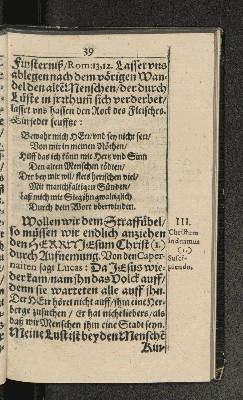 39
Finsterniß/Rom:13,12. Lasset vns
ablegen nach dem vörigen Wan-
del den alten Menschen/der durch
Lüste in irrthum sich verderbet/
lasset vns hassen den Rock des Fleisches.
Ein jeder seufftze:
Bewahr mich HErr/vnd sey nicht fern/
Von mir in meinen Nöthen/
Hilff das ich könn mit Hertz vnd Sinn
Den alten Menschen tödten/
Der bey mir wil/stets herschen viel/
Mit manchfaltigen Sünden/
laß mich mit Sieg ihn gwaltiglich
Durch dein Wort vberwinden.
Wollen wir dem Straffübel/
so müssen wir endlich anziehen
den HERRN JEsum Christ (1.)
durch Aufnemung. Von den Caper-
naiten sagt Lucas: Da JEsus wie-
der kam/nam ihn das Volck auff/
denn sie warteten alle auff ihn.
Der HErr höret nicht auff/ihm eine Her-
berge zusuchen/er hat nichts liebers/als
daß wir Menschen ihm eine Stadt seyn.
Meine Lust ist bey den Mensch[en]
Kin-
III.
Christum
induamus
(1.)
Susci-
piendo.